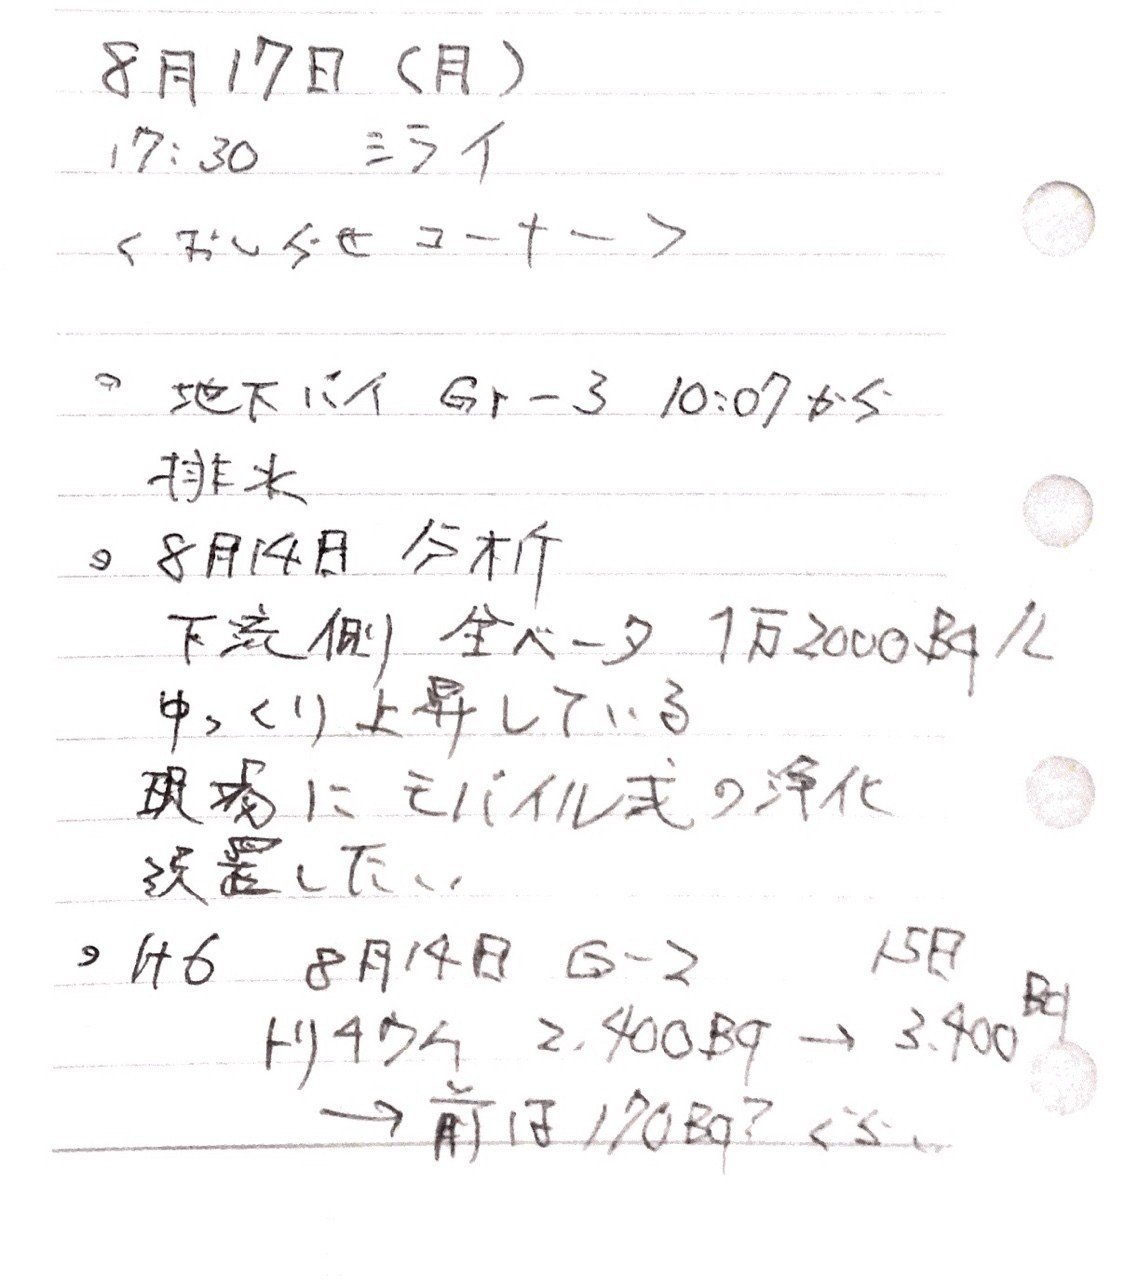 8月17日（月）
17:30 ミライ
＜おしらせコーナー＞
。地下バイ Gr-3 10:07から
排水
。8月14日 分析
下流側 全ベータ 1万2000Bq/L
ゆっくり上昇している
現場にモバイル式の浄化
設置したい
。H6 8月14日 G-2 15日
トリチウム 2.400Bq → 3.400Bq
→ 前は170Bq? くらい